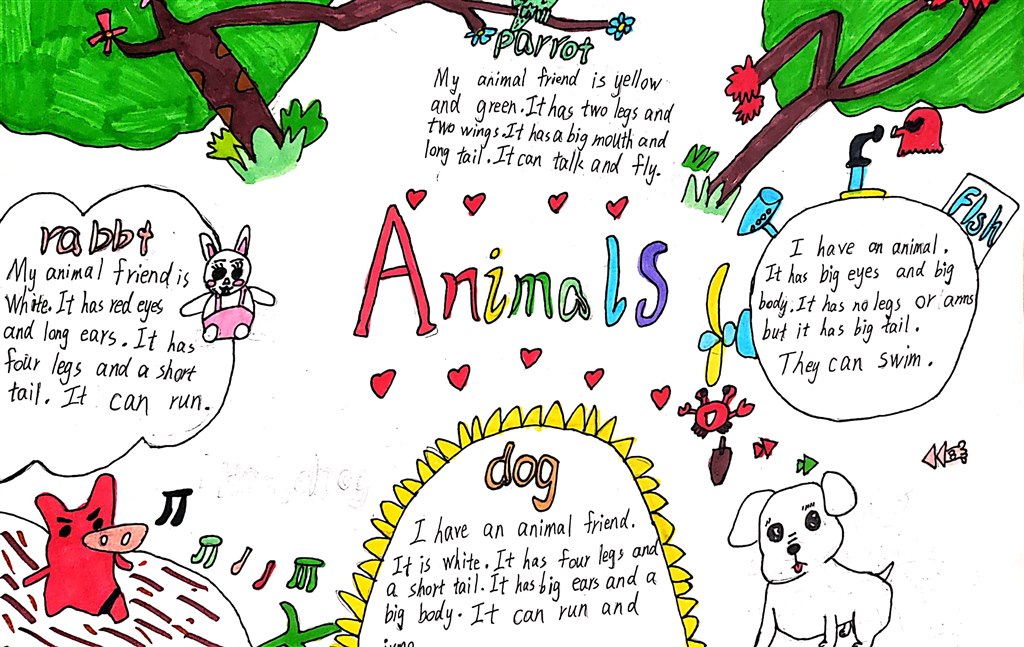 parrot
My animal friend is yellow
and green. It has two legs and
two wings. It has a big mouth and
long tail. It can talk and fly.
Animals
rabbt
My animal friend is
White. It has red eyes
and long ears. It has
four legs and a short
tail. It can run.
FIsh
I have an animal.
It has big eyes and big
body. It has no legs or arms
but it has big tail.
They can swim.
dog
I have an animal friend.
It is white. It has four legs and
a short tail. It has big ears and a
big body. It can run and